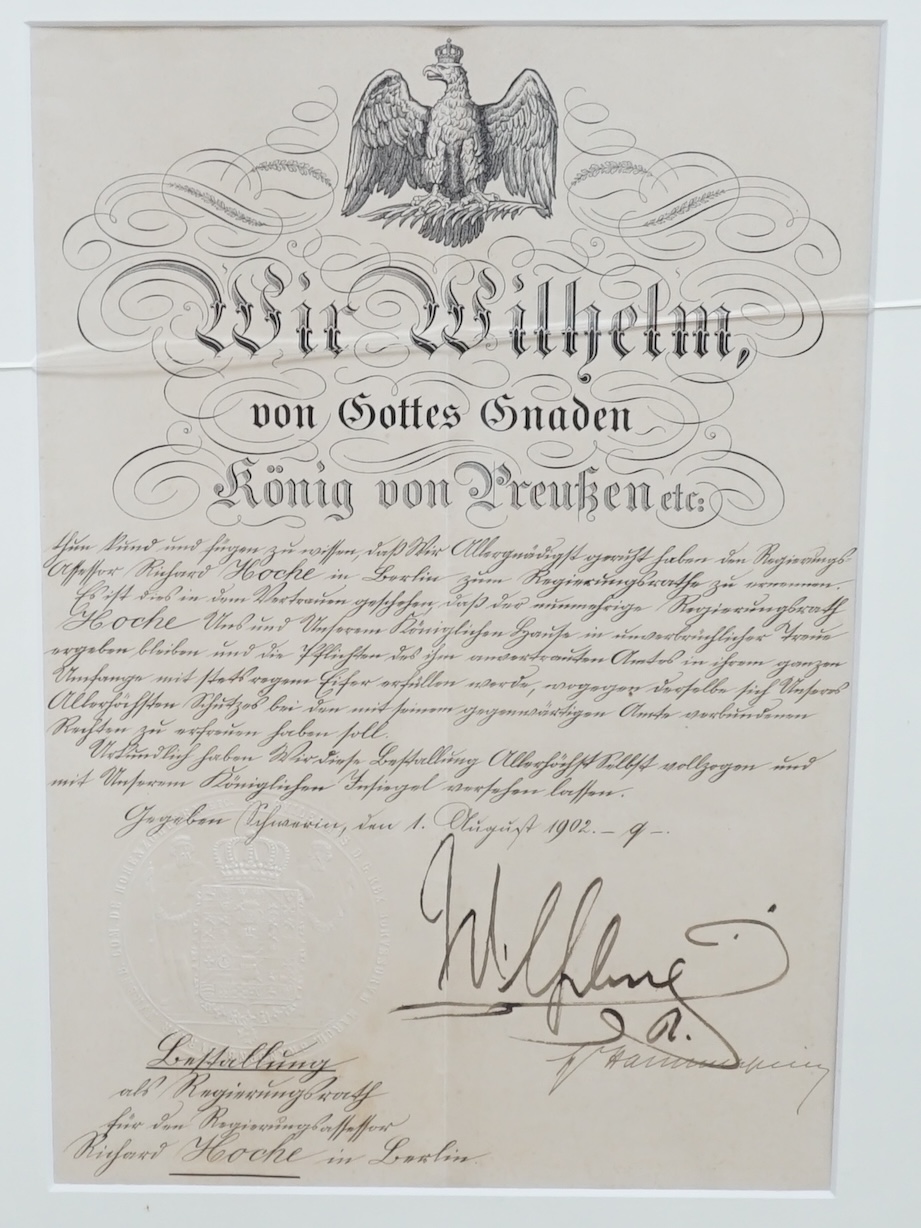 Wir Wilhelm,
von Gottes Gnaden
König von Preußen etc:
thun kund und fügen zu wissen, daß Wir Allergnädigst geruht haben den Regierungs-
Assessor Richard Hoche in Berlin zum Regierungsrathe zu ernennen.
Es ist dies in dem Vertrauen geschehen, daß der nunmehrige Regierungsrath
Hoche Uns und Unserem Königlichen Hause in unverbrüchlicher Treue
ergeben bleiben und die Pflichten des ihm anvertrauten Amtes in ihrem ganzen
Umfange mit stets regem Eifer erfüllen werde, wogegen derselbe sich Unseres
Allerhöchsten Schutzes bei den mit seinem gegenwärtigen Amte verbundenen
Rechten zu erfreuen haben soll.
Urkundlich haben Wir diese Bestallung Allerhöchst Selbst vollzogen und
mit Unserem Königlichen Insiegel versehen lassen.
Gegeben Schwerin, den 1. August 1902.
Wilhelm
R.
Bestallung
als Regierungsrath
für den Regierungsassessor
Richard Hoche in Berlin.